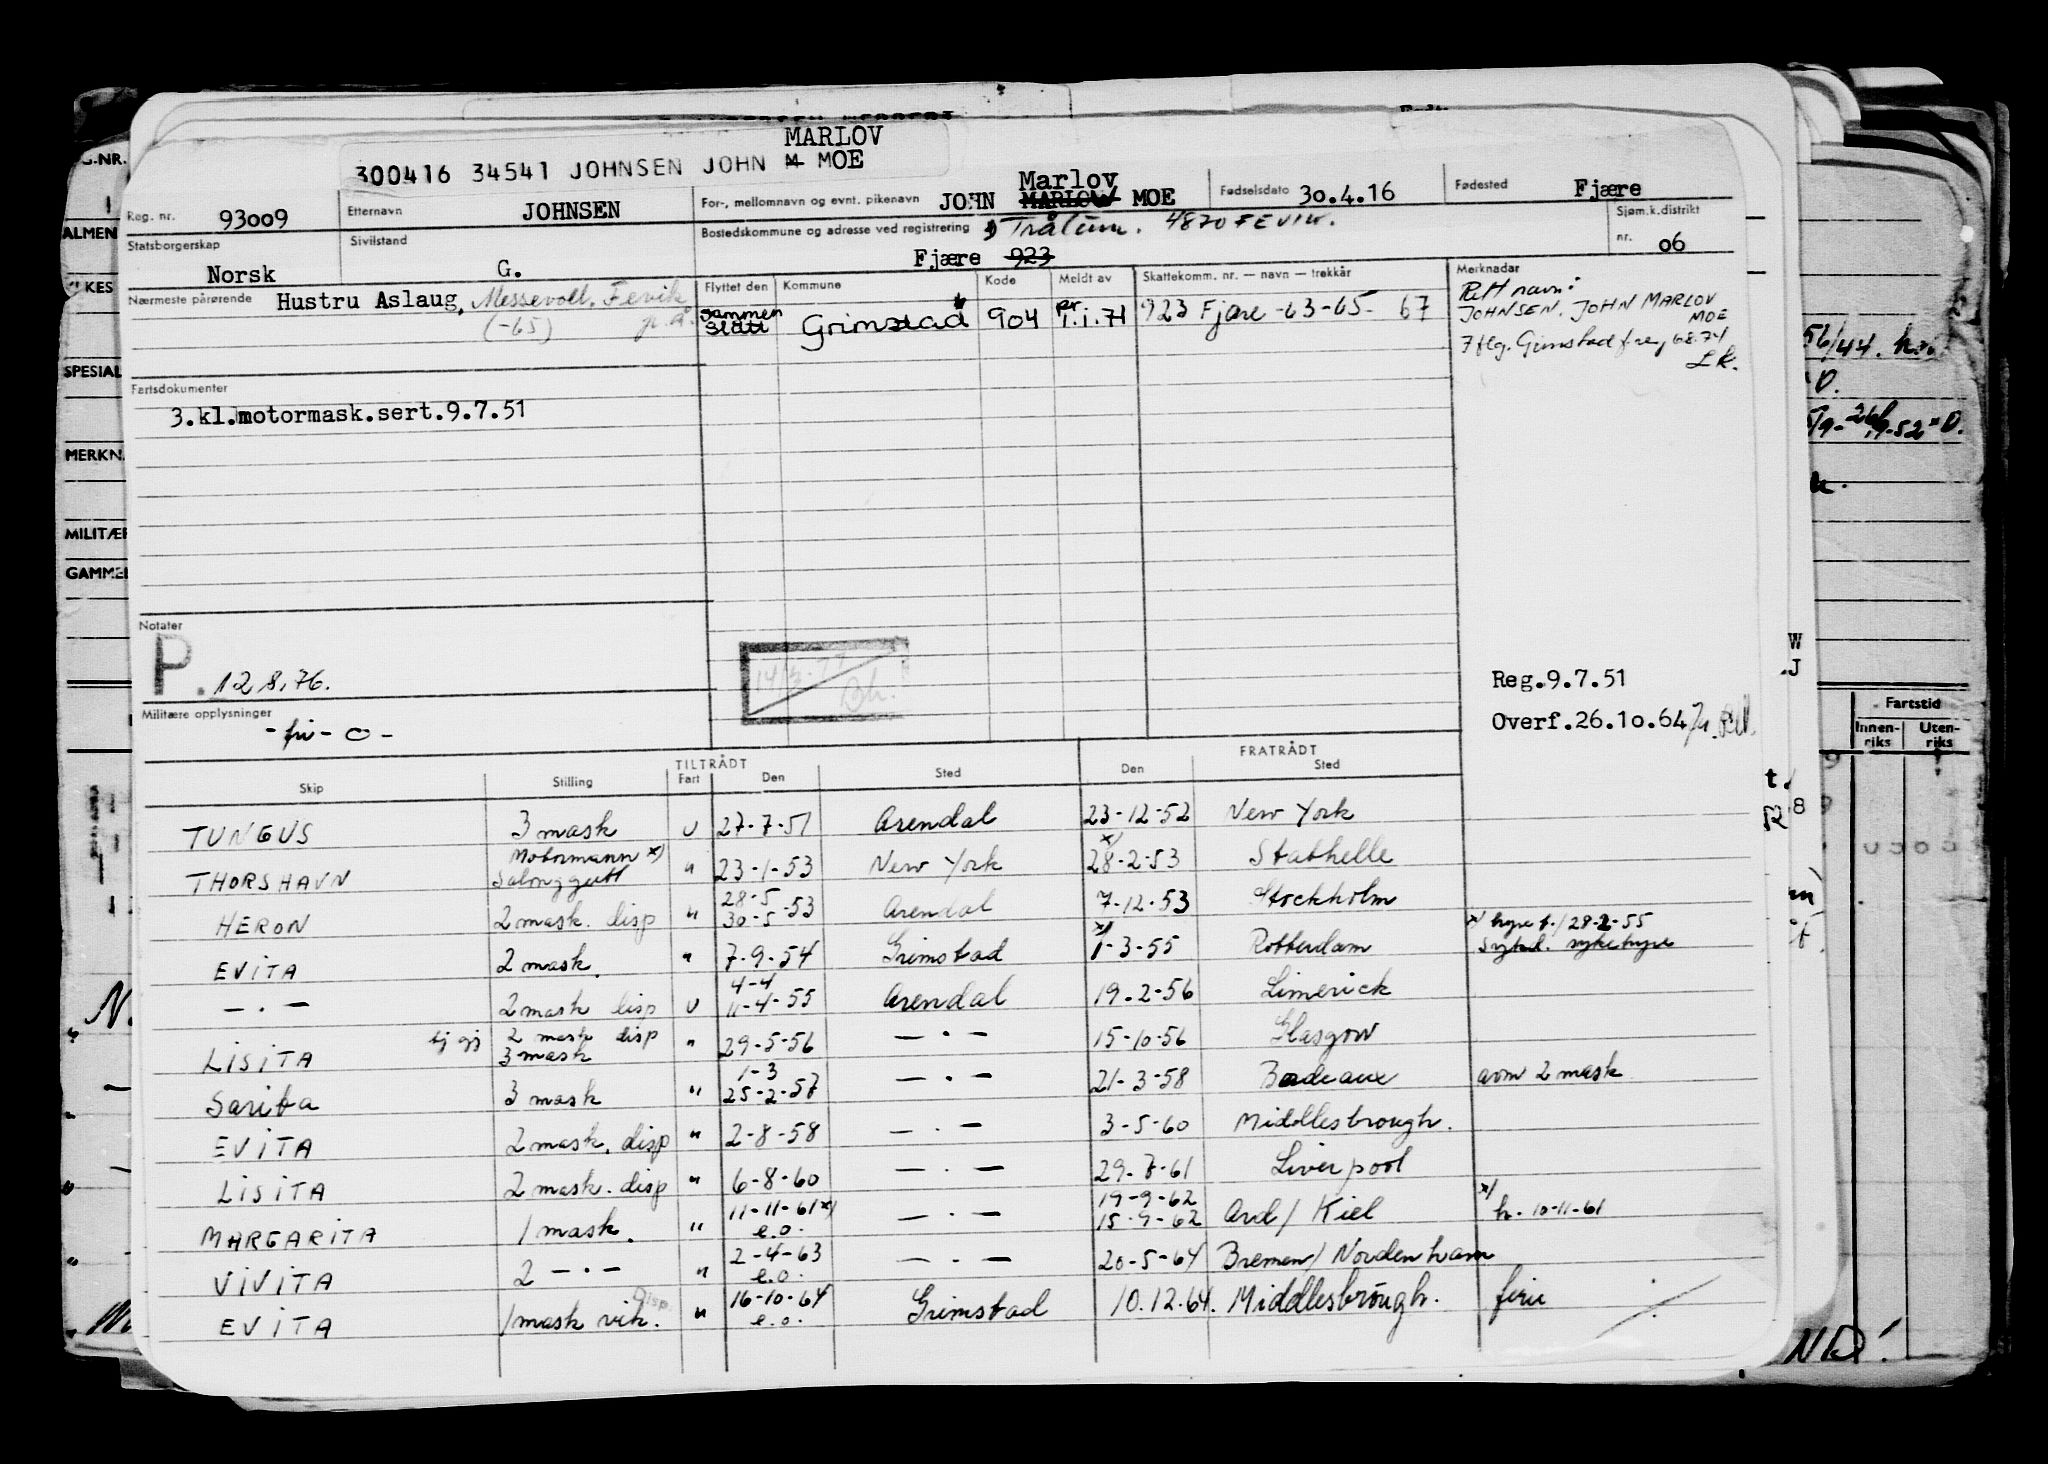 MARLOV
300416 34541 JOHNSEN JOHN M MOE
Reg. nr. 93009
Etternavn JOHNSEN
For-, mellomnavn og evnt. pikenavn JOHN MARLOW Marlov MOE
Fødselsdato 30.4.16
Fødested Fjære
Statsborgerskap Norsk
Sivilstand G.
Bostedskommune og adresse ved registrering Fjære 923
4870 FEVIK.
Sjøm.k.distrikt nr. 06
Nærmeste pårørende Hustru Aslaug, Messevoll, Fevik
(-65)
Flyttet den Kommune Kode Meldt av Skattekomm. nr. — navn — trekkår Merknadar
Sammen slått Grimstad 904 pr 1.1.71 923 Fjære -63-65- 67
Rett navn:
JOHNSEN, JOHN MARLOV
MOE
L.K.
Fartsdokumenter
3.kl.motormask.sert.9.7.51
Notater
P. 12 8.76.
Reg.9.7.51
Militære opplysninger
- fri - O -
Overf.26.10.64
TILTRÅDT FRATRÅDT
Skip Stilling Fart Den Sted Den Sted
TUNGUS 3 mask U 27-7-51 Arendal 23-12-52 New York
THORSHAVN Motormann x) Salonggutt " 23-1-53 New York x) 28-2-53 Stathelle
HERON 2 mask. disp " 28-5 30-5-53 Arendal 7-12-53 Stockholm
EVITA 2 mask. " 7-9-54 Grimstad x) 1-3-55 Rotterdam x) hyre t./ 28-2-55 sykehyre
— . — 2 mask disp U 4-4 11-4-55 Arendal 19-2-56 Limerick
LISITA tj gj 2 mask disp 3 mask " 29-5-56 — . — 15-10-56 Glasgow
Sarita 3 mask " 1-3 25-2-57 — . — 21-3-58 Bordeaux avm 2 mask
EVITA 2 mask. disp " 2-8-58 — . — 3-5-60 Middlesbrough.
LISITA 2 mask. disp " 6-8-60 — . — 29-7-61 Liverpool
MARGARITA 1 mask. " 11-11-61 x) e.o. — . — 19-9-62 15-9-62 Ard / Kiel x) h. 10-11-61
VIVITA 2 — . — " 2-4-63 e.o. — . — 20-5-64 Bremen / Nordenham
EVITA 1 mask vik. Disp " 16-10-64 e.o. Grimstad 10.12.64. Middlesbrough. ferie
G.NR.
ALMEN
SPESIAL
MERKN.
MILITÆR
GAMMEL
Fartstid
Innen-riks Uten-riks